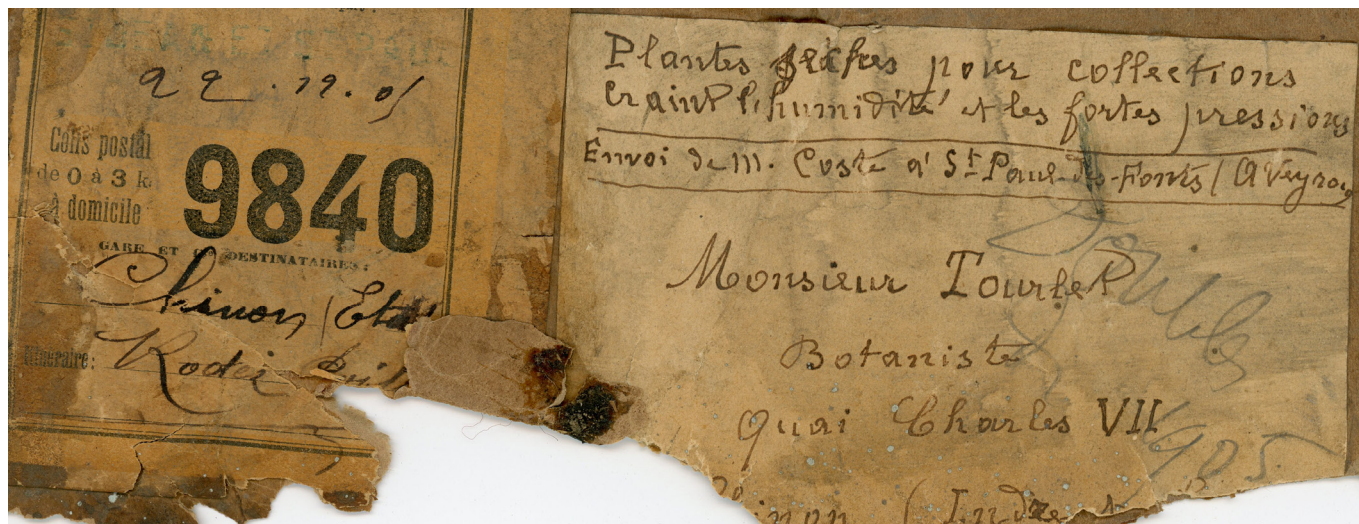 22.12.05
Colis postal
de 0 à 3 k.
à domicile
9840
GARE ET DESTINATAIRES:
Chinon (Etat
Itinéraire: Rodez
Plantes sèches pour collections
Craint l'humidité et les fortes pressions
Envoi de M. Coste à St Paul-des-Fonts (Aveyron)
Monsieur Tourlet
Botaniste
Quai Charles VII
Chinon (Indre
1905